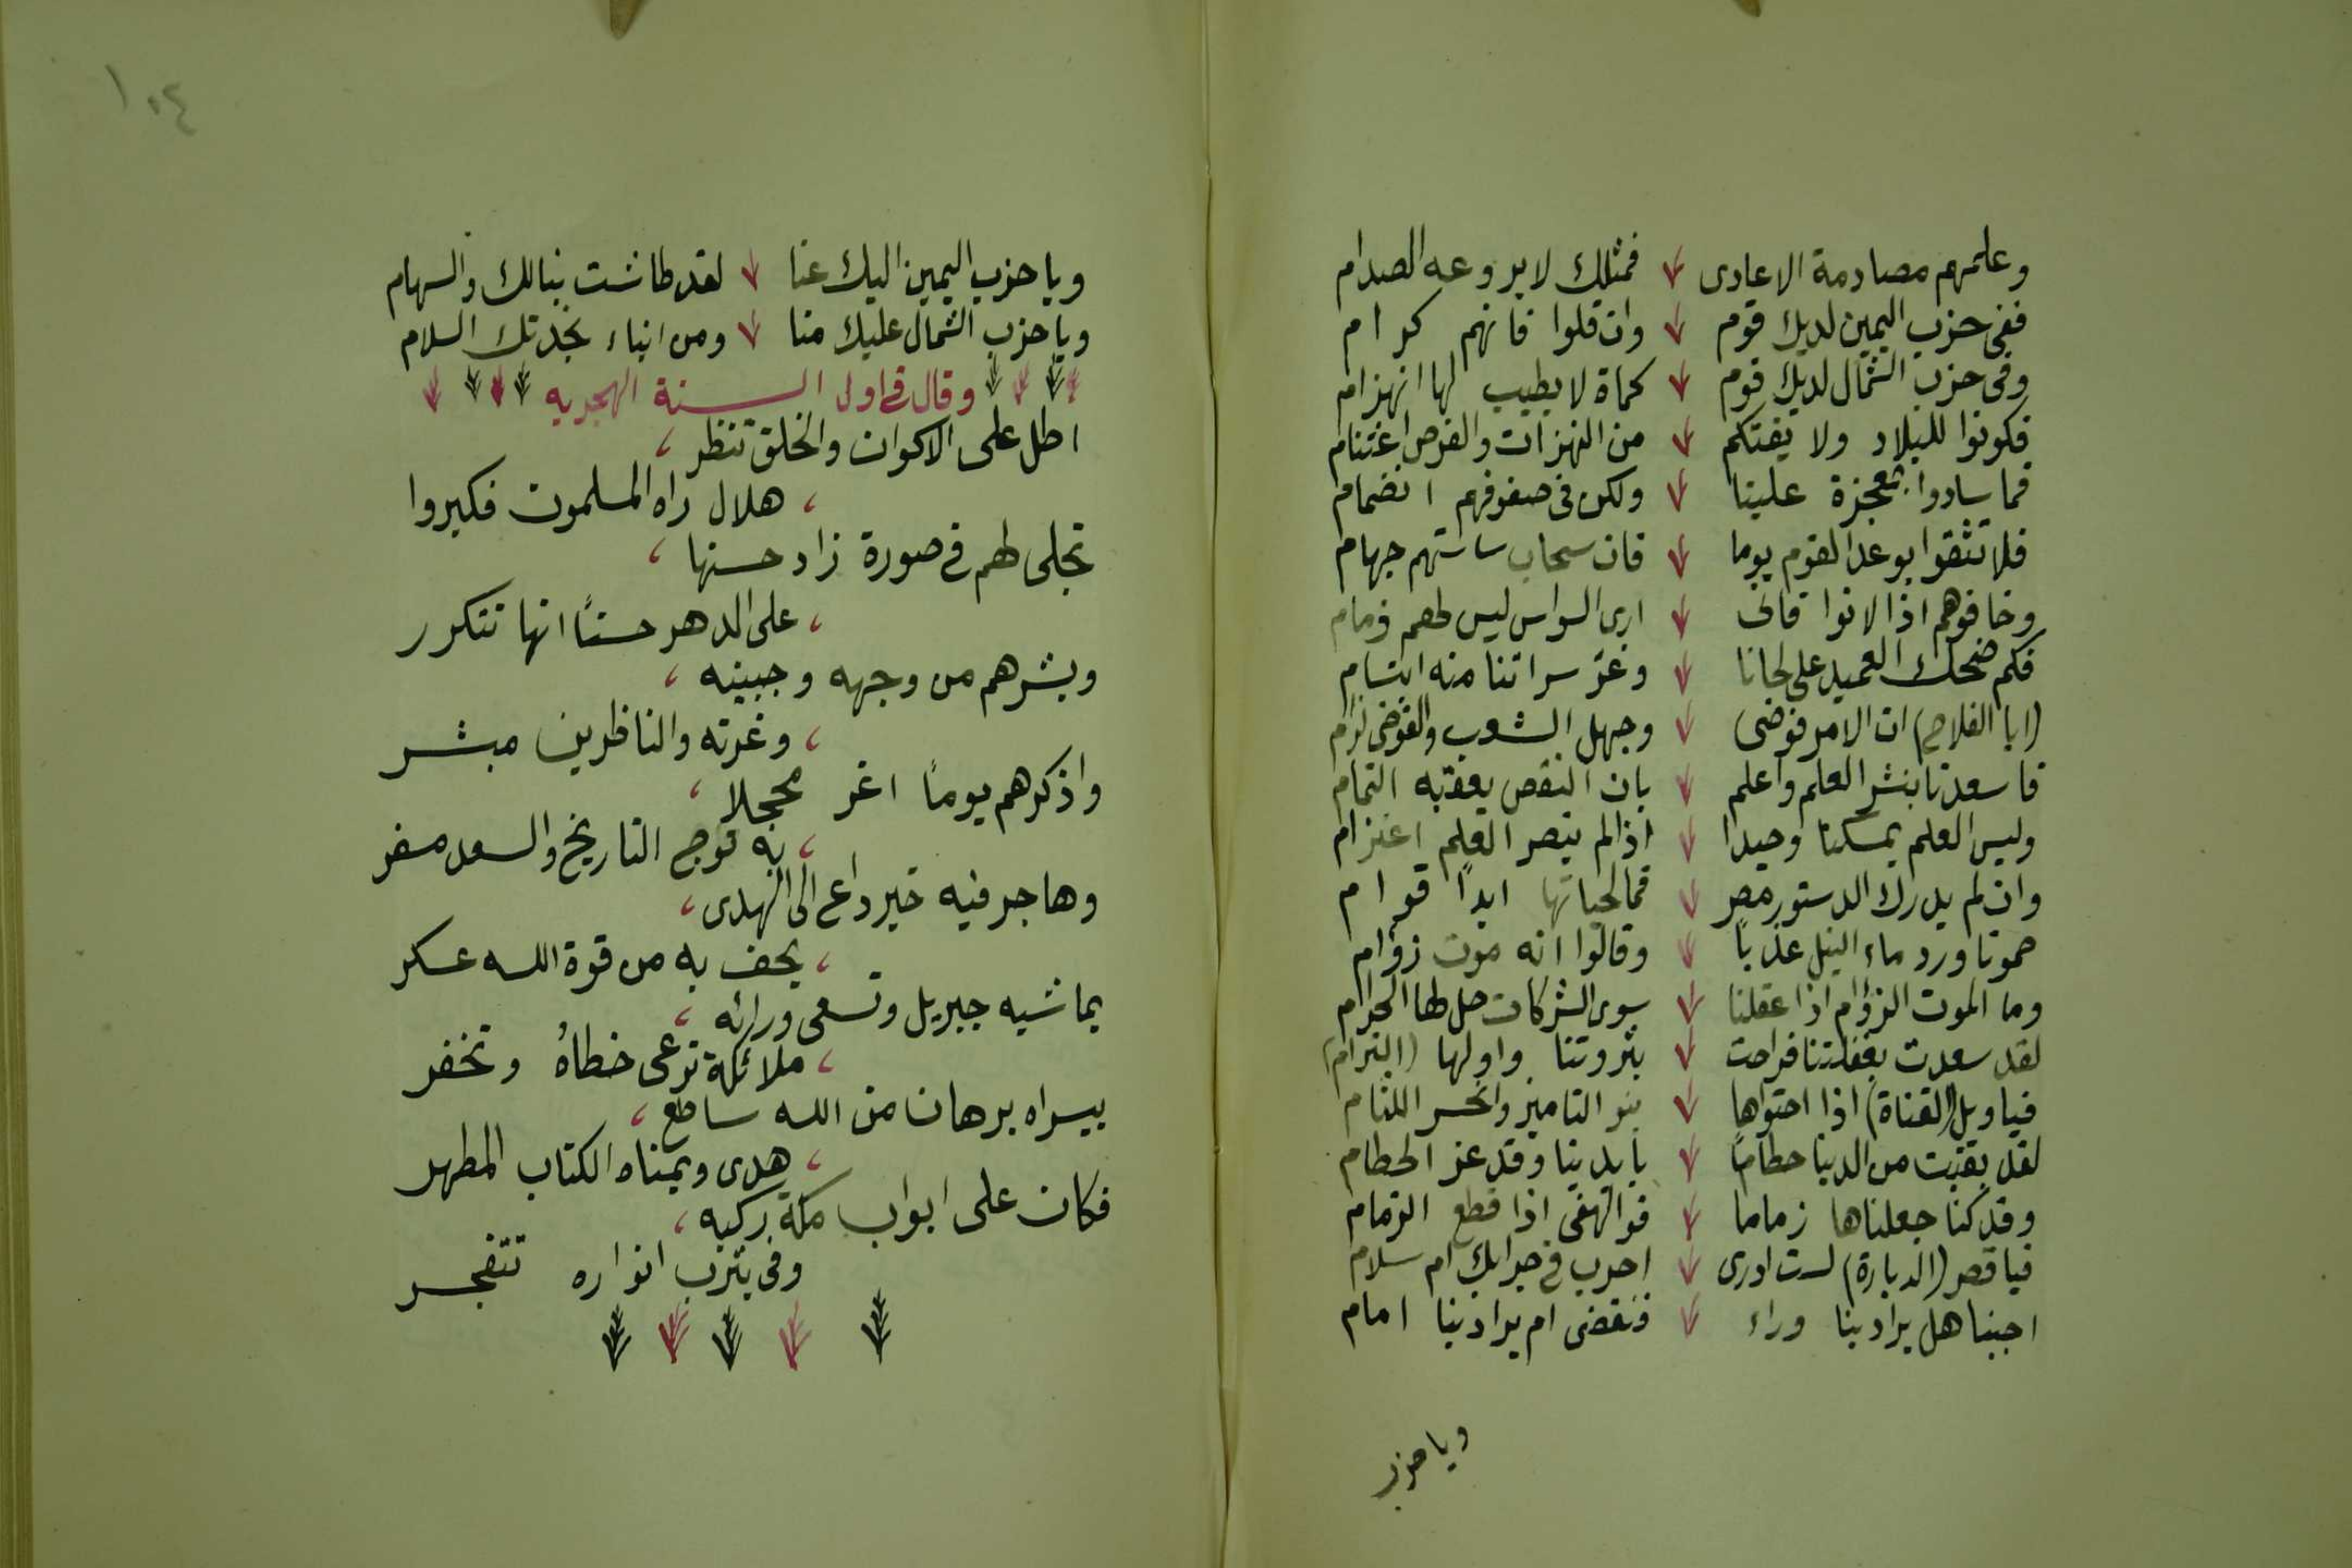 وعلمهم مصادمة الاعادى فمثلك لا يروعه الصدام
ففى حزب اليمين لديك قوم وان قلوا فانهم كرام
وفى حزب الشمال لديك قوم كماة لا يطيب لها انهزام
فكونوا للبلاد ولا يفتكم من النهزات والفرص اغتنام
فما سادوا بمعجزة علينا ولكن فى صفوفهم انضمام
فلا تثقوا بوعد القوم يوما فان سحاب ساستهم جهام
وخافوهم اذا لانوا فانى ارى السواس ليس لهم ذمام
فكم ضحك العميد على لحانا وغر سراتنا منه ابتسام
(ابا الفلاح) ان الامر فوضى وجهل الشعب والفوضى لزام
فاسعدنا بنشر العلم واعلم بان النقص يعقبه التمام
وليس العلم يمسكنا وحيدا اذا لم ينصر العلم اعتزام
وان لم يدرك الدستور مصر فما لحياتها ابدًا قوام
حمونا ورد ماء النيل عذبا وقالوا انه موت زؤام
وما الموت الزؤام اذا عقلنا سوى الشركات حل لها الحرام
لقد سعدت بغفلتنا فراحت بثروتنا واولها (الترام)
فيا ويل (القناة) اذا احتواها بنو التاميز وانحسر اللثام
لقد بقيت من الدنيا حطامًا بايدينا وقد عز الحطام
وقد كنا جعلناها زماما فوالهفى اذا قطع الزمام
فيا قصر (الدبارة) لست ادرى احرب فى جرابك ام سلام
اجبنا هل يراد بنا وراء فنقضى ام يراد بنا امام
ويا حزب
١٠٤
ويا حزب اليمين اليك عنا لقد طاشت نبالك والسهام
ويا حزب الشمال عليك منا ومن ابناء نجدتك السلام
وقال فى اول السنة الهجريه
اطل على الاكوان والخلق تنظر
هلال راه المسلمون فكبروا
تجلى لهم فى صورة زاد حسنها
على الدهر حسنًا انها تتكرر
وبشرهم من وجهه وجبينه
وغرته والناظرين مبشر
واذكرهم يومًا اغر محجلا
به توج التاريخ والسعد مسفر
وهاجر فيه خير داع الى الهدى
يحف به من قوة الله عسكر
يماشيه جبريل وتسعى ورائه
ملائكة ترعى خطاهُ وتخفر
بيسراه برهان من الله ساطع
هدى ويمناه الكتاب المطهر
فكان على ابواب مكة ركبه
وفى يثرب انواره تتفجر